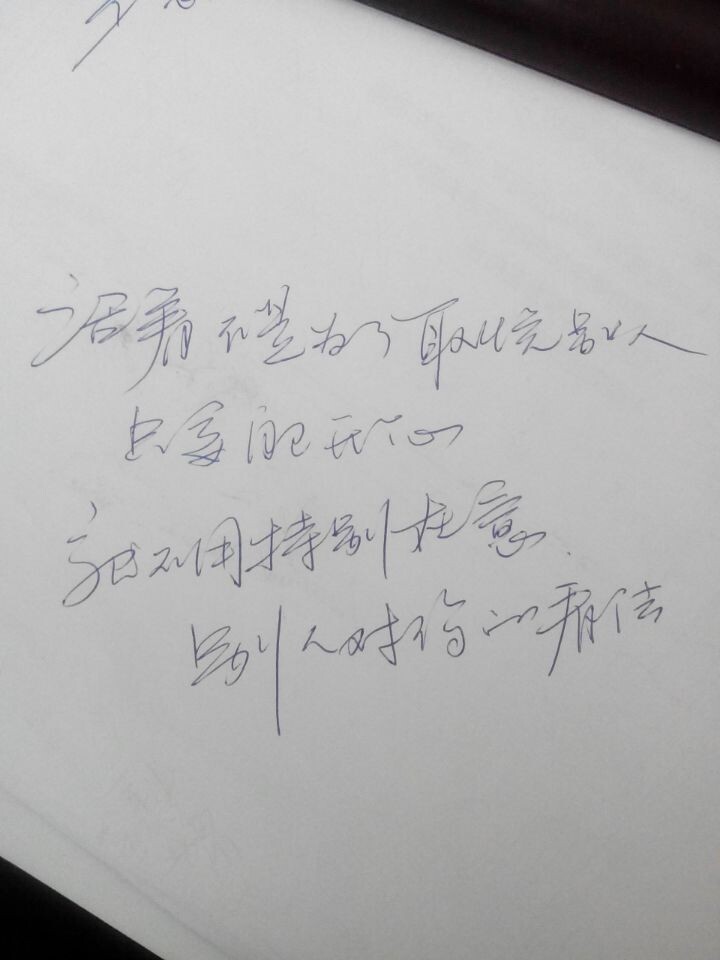 活着不是为了取悦别人
只要自己开心
就不用特别在意
别人对你的看法